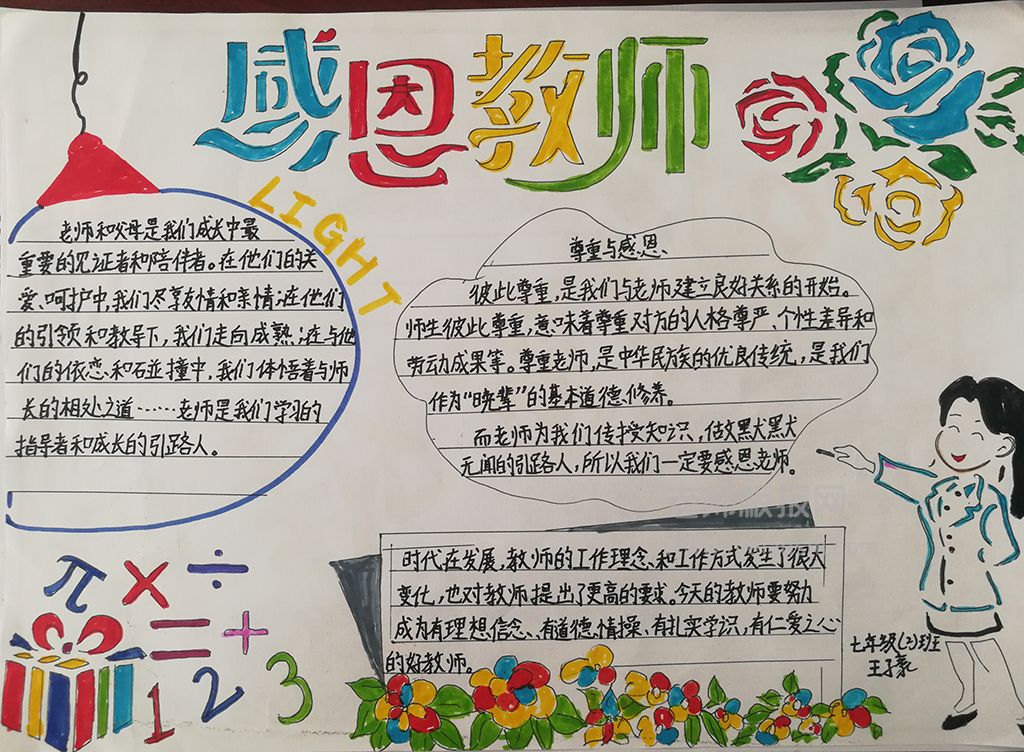 感恩教师
LIGHT
老师和父母是我们成长中最
重要的见证者和陪伴者。在他们的关
爱、呵护中,我们尽享友情和亲情;在他们
的引领和教导下,我们走向成熟;在与他
们的依恋、和碰撞中,我们体悟着与师
长的相处之道……老师是我们学习的
指导者和成长的引路人。
尊重与感恩、
彼此尊重,是我们与老师建立良好关系的开始。
师生彼此尊重,意味着尊重对方的人格尊严、个性差异和
劳动成果等。尊重老师,是中华民族的优良传统,是我们
作为“晚辈”的基本道德修养。
而老师为我们传授知识,做默默
无闻的引路人,所以我们一定要感恩老师。
时代在发展,教师的工作理念、和工作方式发生了很大
变化,也对教师提出了更高的要求。今天的教师要努力
成为有理想信念、有道德情操、有扎实学识,有仁爱之心
的好教师。
七年级(2)班
π × ÷
= +
1 2 3